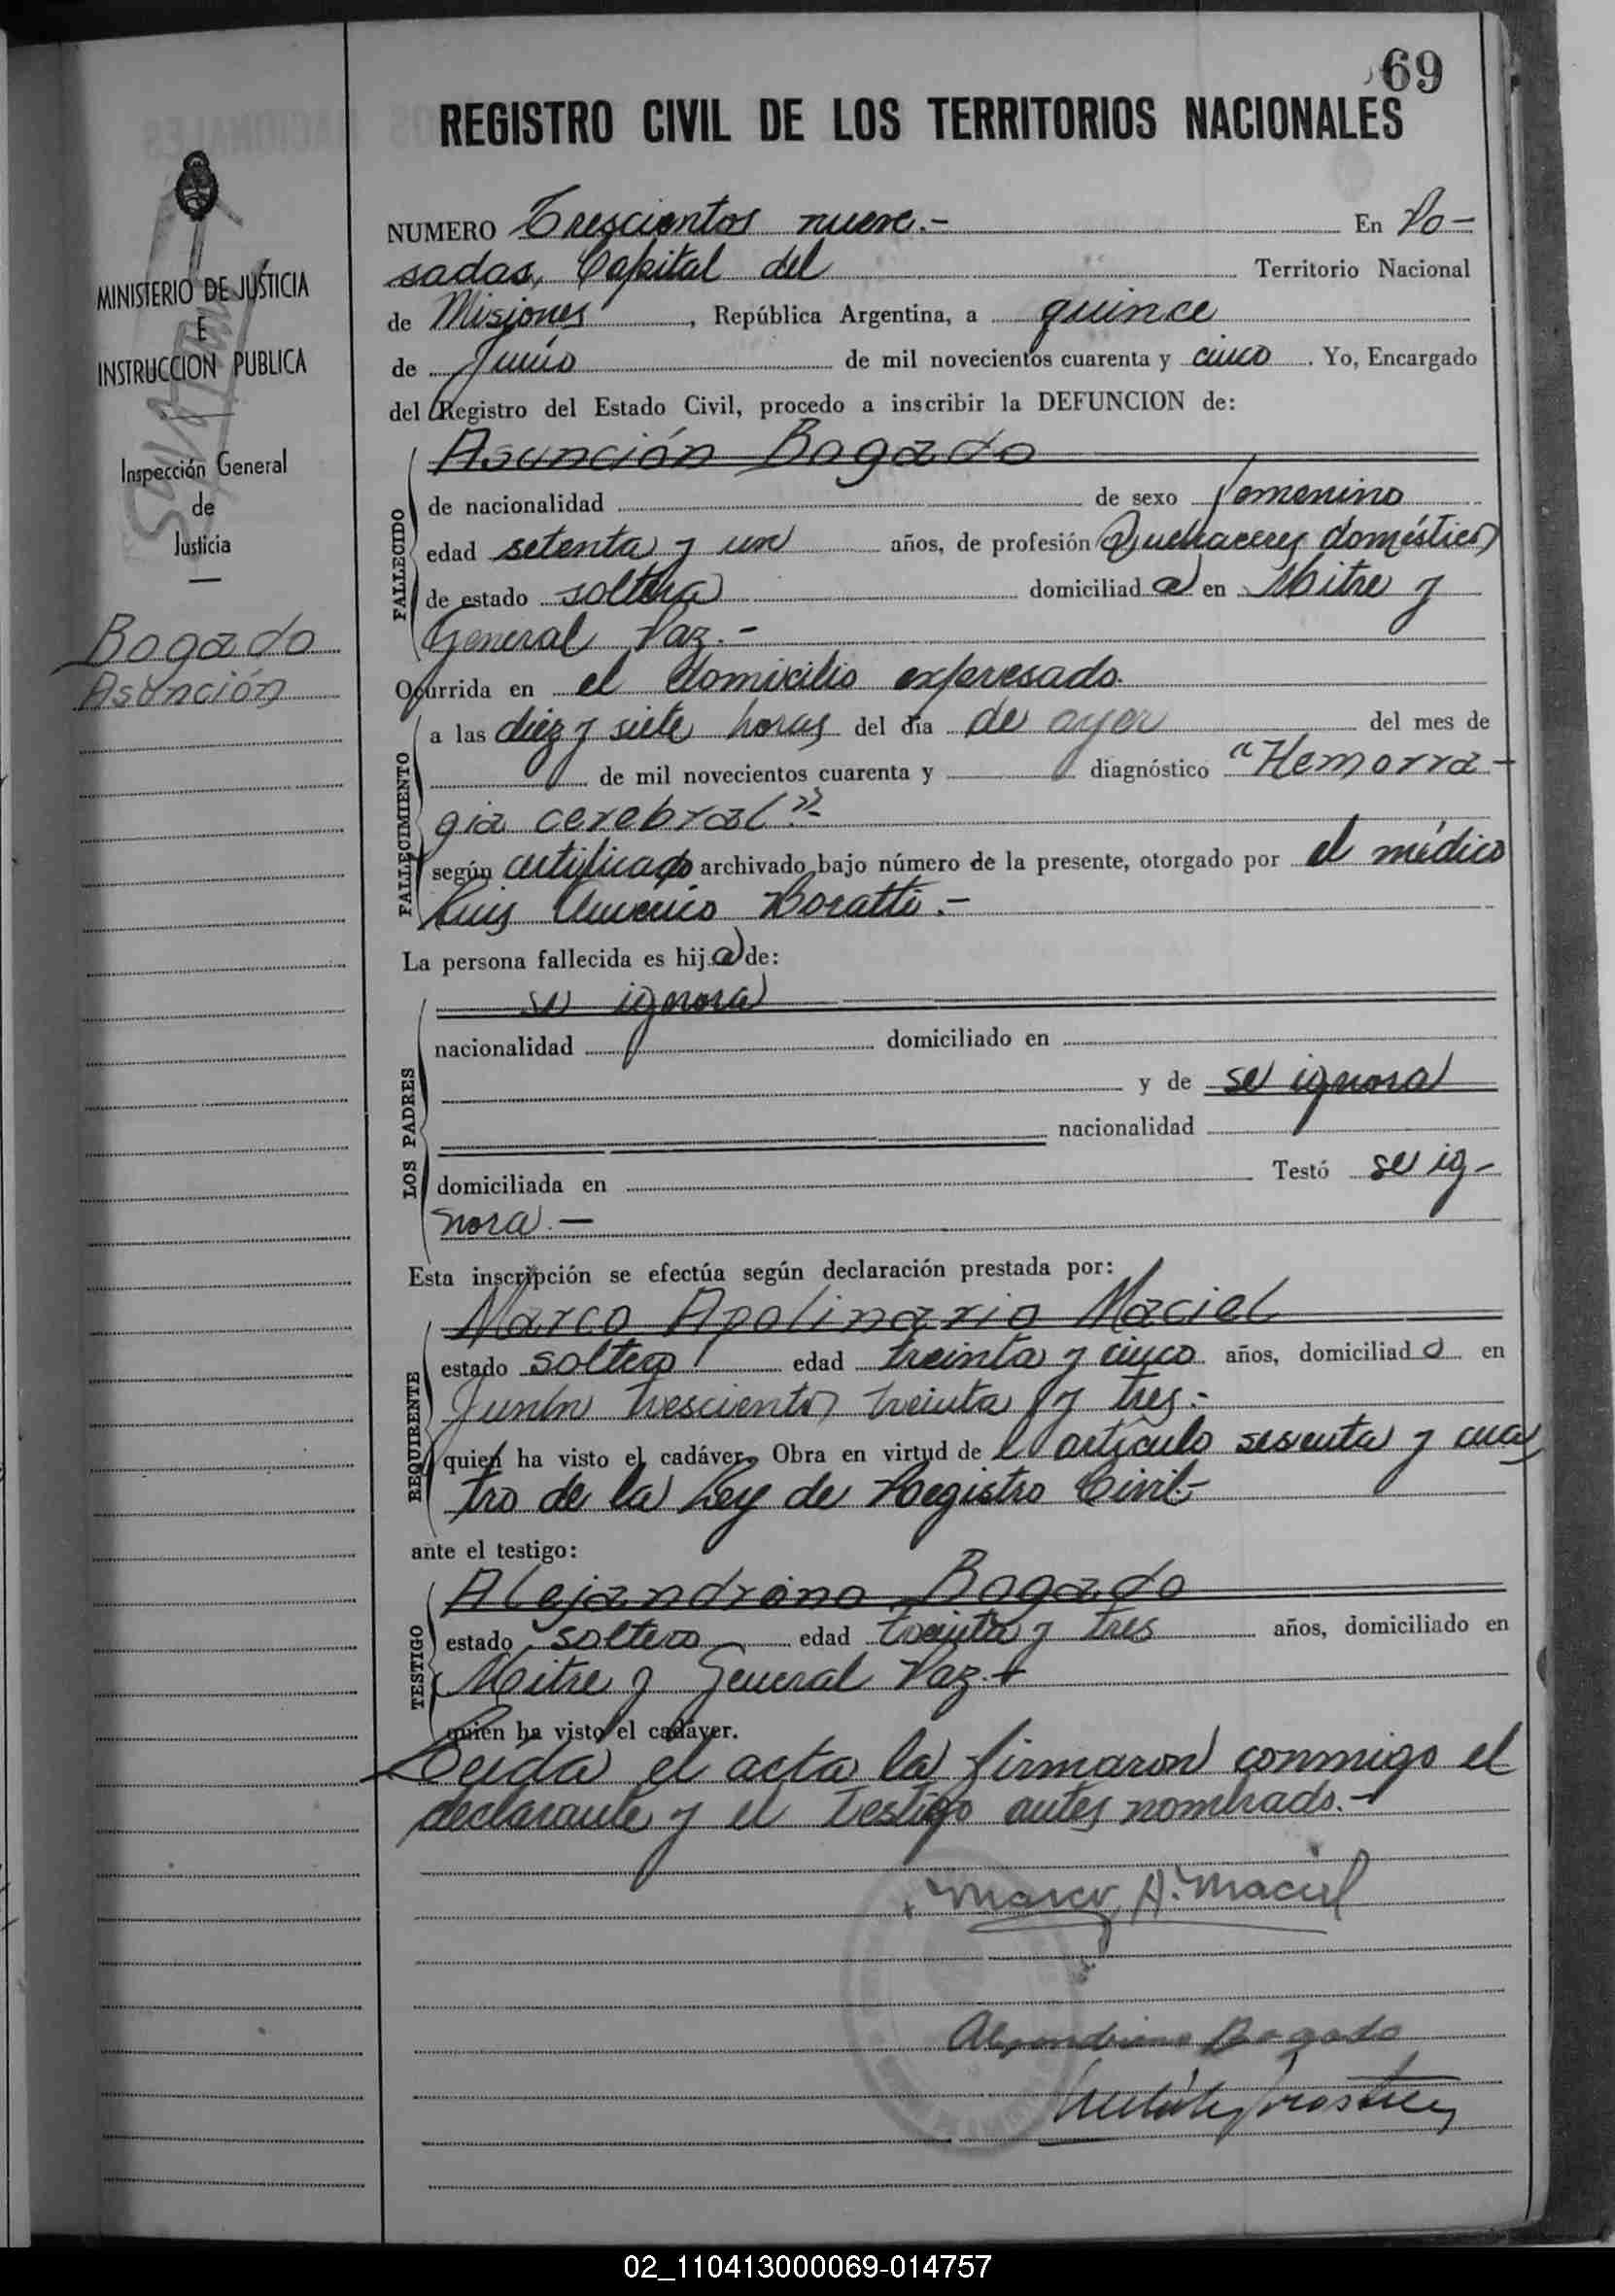 69
REGISTRO CIVIL DE LOS TERRITORIOS NACIONALES
MINISTERIO DE JUSTICIA
E
INSTRUCCION PUBLICA
Inspección General
de
Justicia
Bogado
Asunción
NUMERO Trescientos nueve.- En Po-
sadas, Capital del Territorio Nacional
de Misiones, República Argentina, a quince
de Junio de mil novecientos cuarenta y cinco. Yo, Encargado
del Registro del Estado Civil, procedo a inscribir la DEFUNCION de:
FALLECIDO
Asunción Bogado
de nacionalidad de sexo femenino
edad setenta y un años, de profesión Quehaceres domésticos
de estado soltera domiciliada en Mitre y
General Paz.-
Ocurrida en el domicilio expresado.
FALLECIMIENTO
a las diez y siete horas del día de ayer del mes de
de mil novecientos cuarenta y diagnóstico "Hemorra-
gia cerebral".-
según certificado archivado bajo número de la presente, otorgado por el médico
Luis Americo Boratti.-
La persona fallecida es hija de:
LOS PADRES
se ignora
nacionalidad domiciliado en
y de se ignora
nacionalidad
domiciliada en Testó se ig-
nora.-
Esta inscripción se efectúa según declaración prestada por:
REQUIRENTE
Marco Apolinario Maciel
estado soltero edad treinta y cinco años, domiciliado en
Junín trescientos treinta y tres.-
quien ha visto el cadáver. Obra en virtud del artículo sesenta y cua
tro de la Ley de Registro Civil.-
ante el testigo:
TESTIGO
Alejandrino Bogado
estado soltero edad treinta y tres años, domiciliado en
Mitre y General Paz.-
quien ha visto el cadáver.
Leida el acta la firmaron conmigo el
declarante y el testigo antes nombrado.-
Marco A. Maciel
Alejandrino Bogado
02_110413000069-014757